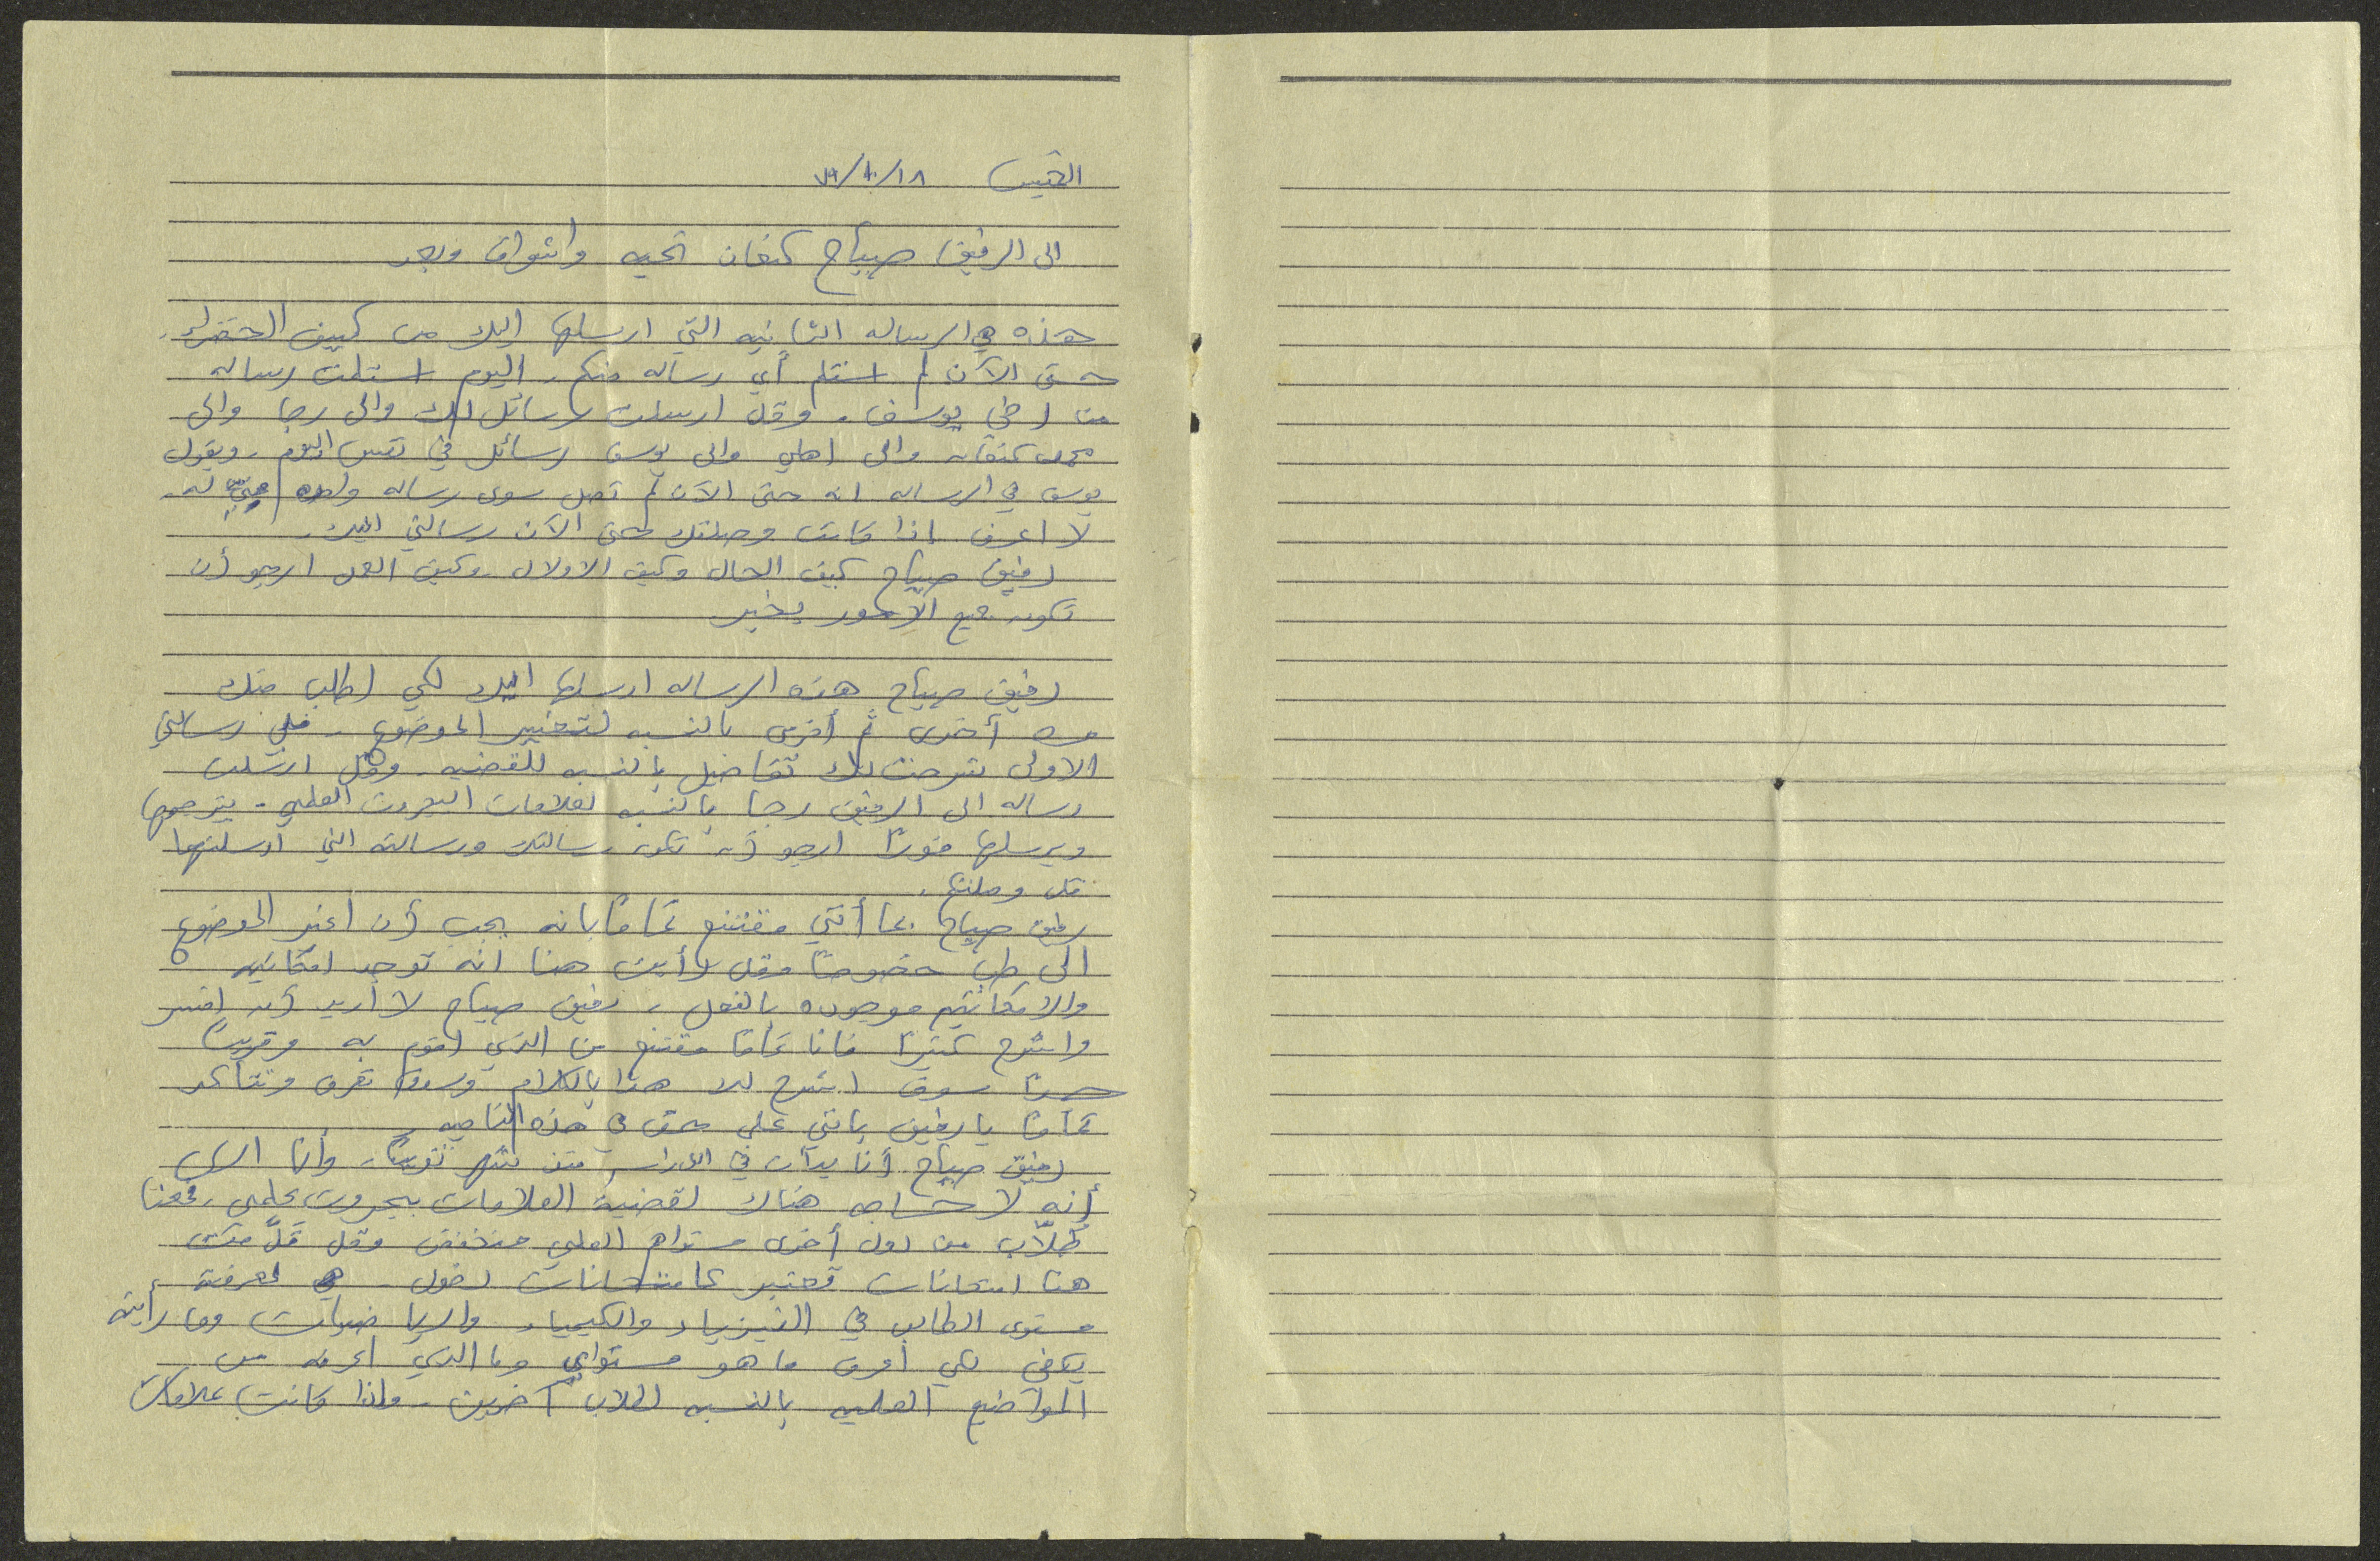 الخميس ١٨/١٠/٧٩
الى الرفيق صباح كنعان تحيه واشواق وبعد
هذه هي الرساله الثانيه التي ارسلها اليك من كييف الخضراء.
حتى الآن لم استلم أي رساله منكم. اليوم استلمت رساله
من اخي يوسف. وقد ارسلت رسائل لك والى رجا والى
محمد كنعان والى اهلي والى يوسف رسائل في نفس اليوم. ويقول
يوسف في الرساله انه حتى الآن لم تصل سوى رساله واحده منّي له.
لا اعرف اذا كانت وصلتك حتى الآن رسالتي اليك.
رفيق صباح كيف الحال وكيف الاولاد وكيف العمل ارجو أن
تكون جميع الأمور بخير
رفيق صباح هذه الرساله ارسلها اليك لكي اطلب منك
مره أخرى ثم أخرى بالنسبه لتغيير الموضوع. ففي رسالتي
الاولى شرحت لك تفاصيل بالنسبه للقضيه. وقد ارسلت
رساله الى الرفيق رجا بالنسبه لعلامات البجروت العلمي. يترجمها
ويرسلها فورًا ارجو أن تكون رسالتك ورسالته التي ارسلتها
قد وصلتكم.
رفيق صباح بما أنني مقتنع تمامًا بانه يجب أن اغير الموضوع
الى طب خصوصًا وقد رأيت هنا انه توجد امكانيه
والامكانيه موجوده بالفعل. رفيق صباح لا أريد أن افسر
واشرح كثيرًا فانا تمامًا مقتنع من الذي اقوم به وقريبًا
جدًا سوف اشرح لك هذا بالكلام وسوف تعرف وتتأكد
تمامًا يا رفيق بانني على حق في هذه الناحيه.
رفيق صباح أنا بدأت في الدراسه منذ شهر تقريبًا. وأنا ارى
أنه لا حاجه هناك لقضية العلامات بجروت علمي. فمعنا
طلّاب من دول أخرى مستواهم العلمي منخفض وقد قدّمت
هنا امتحانات تعتبر كامتحانات دخول هي لمعرفة
مستوى الطالب في الفيزياء والكيمياء والرياضيات وما رأيته
يكفي لكي أعرف ما هو مستواي وما الذي اعرفه من
المواضيع العلميه بالنسبه لطلاب آخرين. واذا كانت علامات